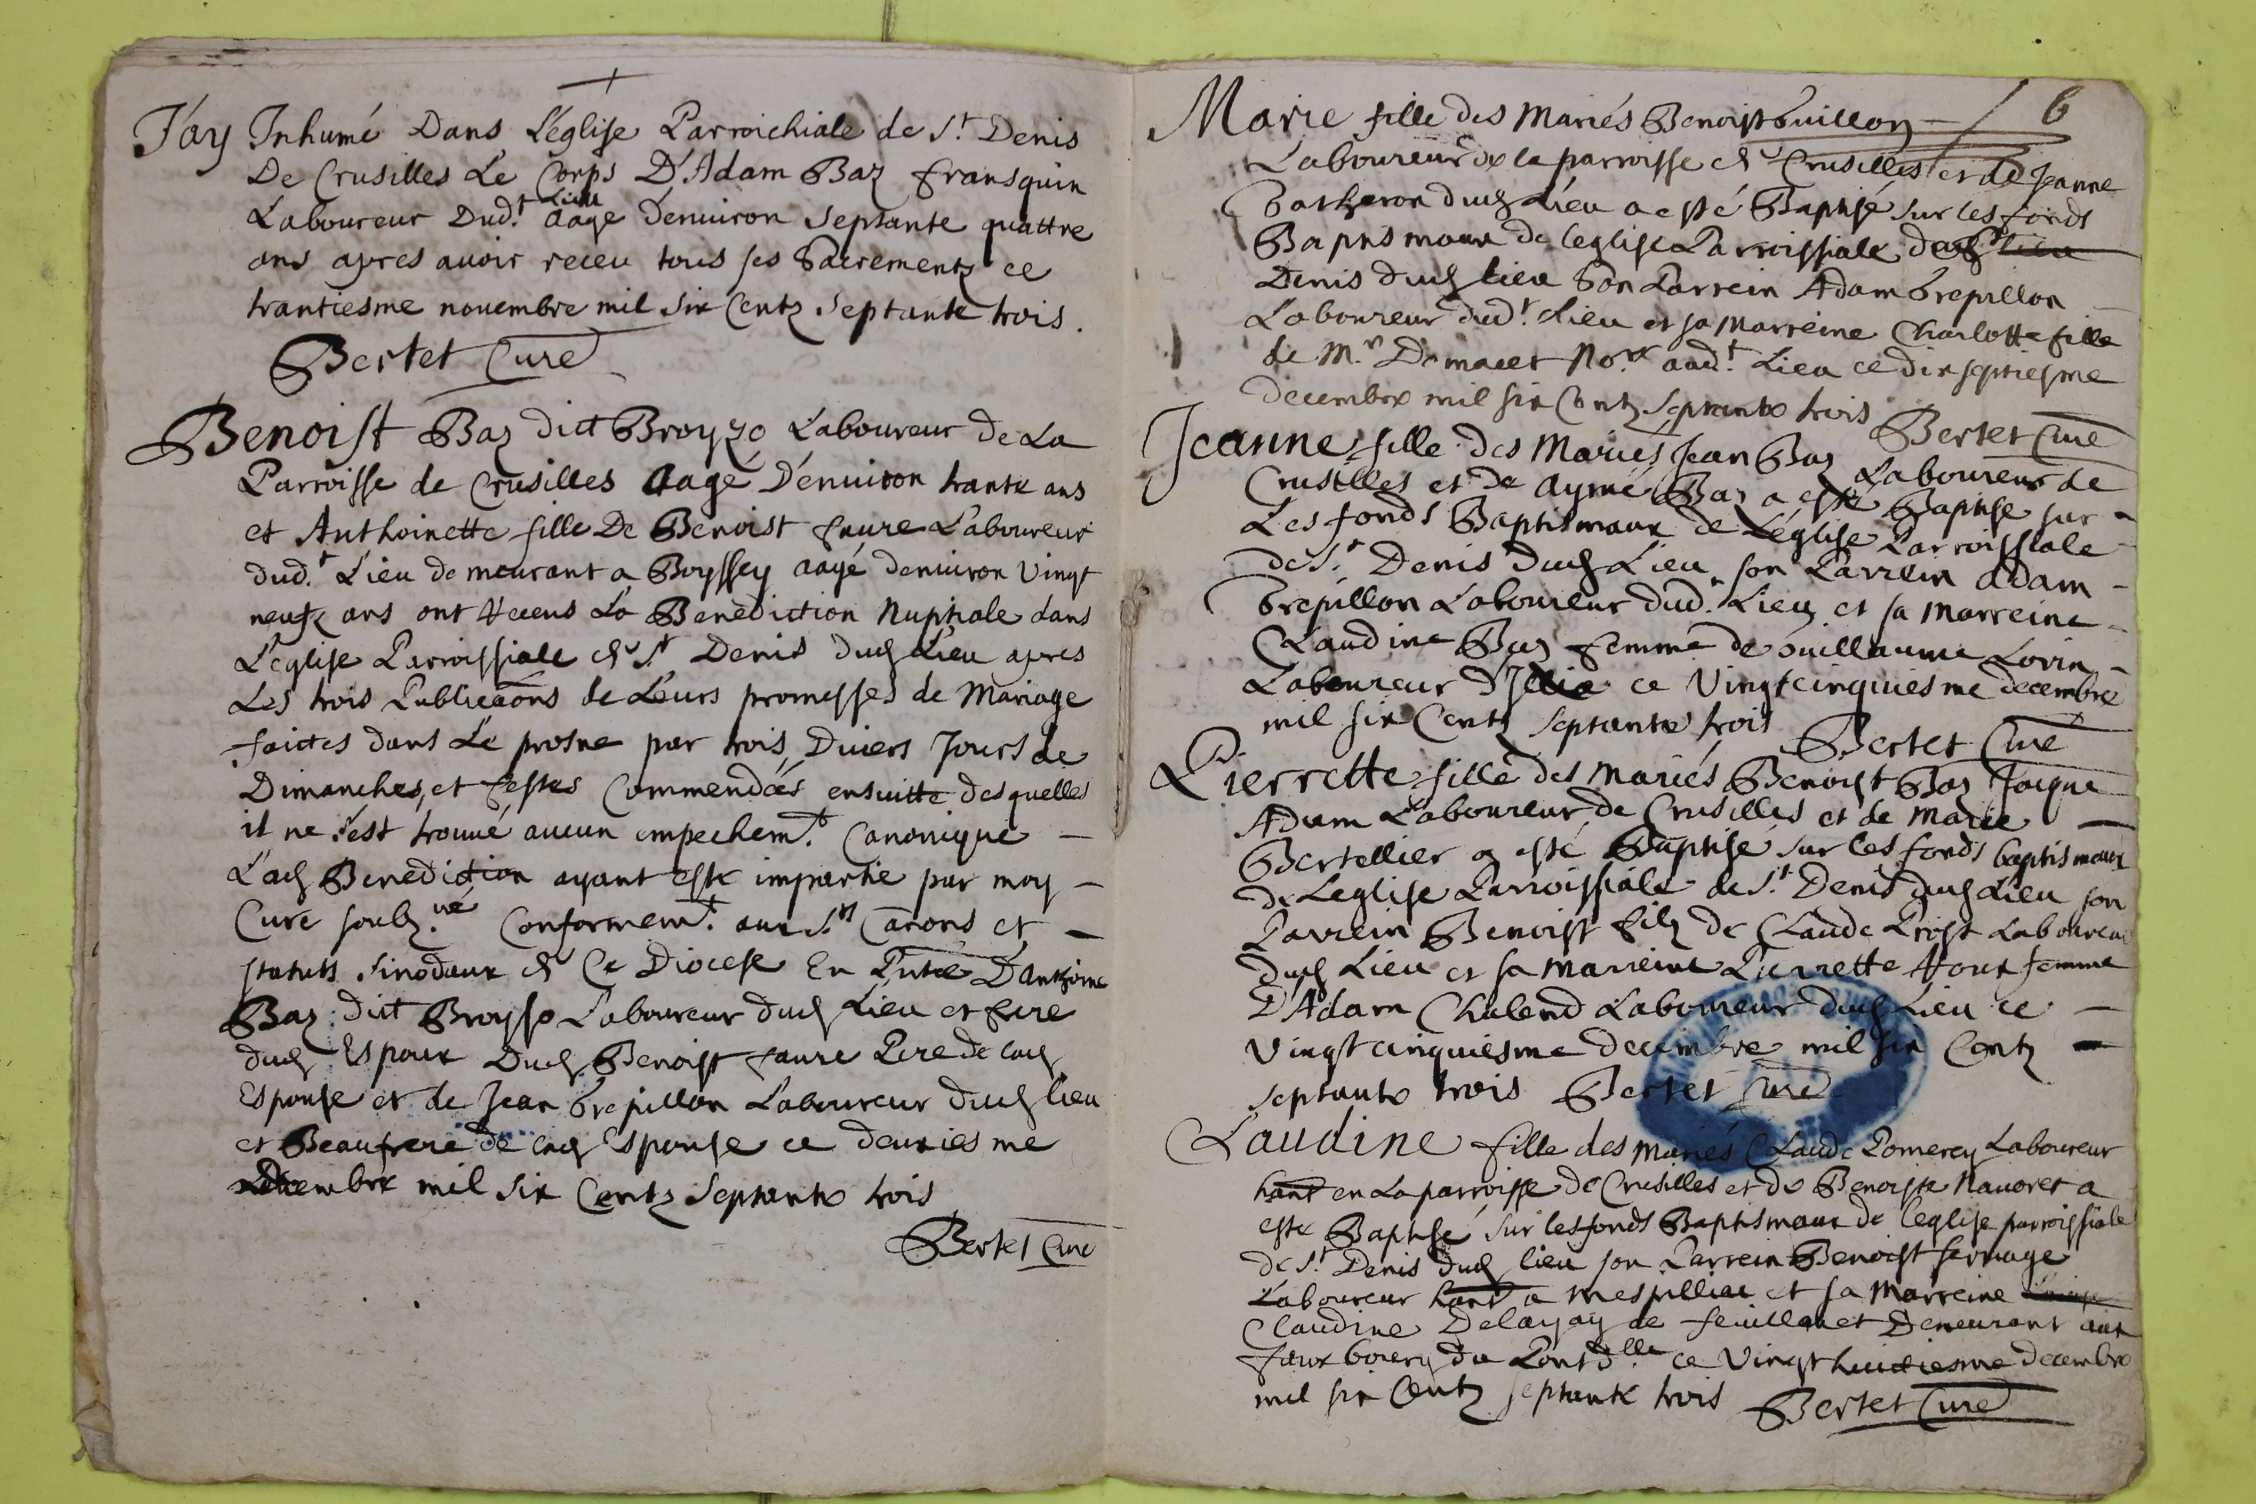 J'ay Inhumé Dans L'église Parroichiale de St Denis
De Crusilles Le Corps D'Adam Baz fransquin
Laboureur Dud.t Lieu aagé denuiron septante quattre
ans apres auoir receu tous ses Sacrements ce
trantiesme nouembre mil six Centz septante trois.
Bertet Curé
Benoist Baz dict Broyzo Laboureur de La
Parroisse de Crusilles aagé D'enuiron trante ans
et Anthoinette fille De Benoist faure Laboureur
dud.t Lieu demeurant a Boyssey aagé denuiron Vingt
neufz ans ont Receus La Benediction Nuptiale dans
L'eglise Parroissiale de St Denis dud Lieu apres
Les trois Publicaons de Leurs promesses de Mariage
faictes dans Le prosne par trois Diuers Jours de
Dimanches, et festes Commendées ensuitte desquelles
il ne s'est trouué aucun empechem.t Canonique
Lad Benediction ayant esté impartie par moy
Curé soub.né Conformem.t aux S.ts Canons et
statuts sinodaux de Ce Diocese En Pntce D'anthoine
Baz dit Broyso Laboureur dud Lieu et frere
dud Espoux Dud Benoist faure Pere de lad
Espouse et de Jean Grepillon Laboureur dud lieu
et Beaufrere de lad Espouse ce deuxiesme
Decembre mil six Centz septante trois
Bertet Curé
6
Marie fille des Mariés Benoist Guillon
Laboureur de la parroisse de Crusilles et de Jeanne
dud Lieu a esté Baptisé sur les fonds
Baptismaux de leglise Parroissiale de St
Denis dud lieu Son Parrein Adam Grepillon
Laboureur dud.t Lieu et sa Marreine Charlotte fille
de M.r Demacet No.re aud.t Lieu ce dixseptiesme
decembre mil six Centz septante trois Bertet Curé
Jeanne fille des Mariés Jean Baz Laboureur de
Crusilles et de Aymé Baz a esté Baptisé sur
Les fonds Baptismaux de L'église Parroissiale
de S.t Denis dud Lieu son Parrein Adam
Grepillon Laboureur dud.t Lieu et sa Marreine
Claudine Baz femme de Guillaume Lorin
Laboureur ce Vingtcinquiesme decembre
mil six Centz septante trois Bertet Curé
Pierrette fille des Mariés Benoist Baz Jaique
Adam Laboureur de Crusilles et de Marie
Bertellier a esté Baptisé sur les fonds baptismaux
de Leglise Parroissiale de S.t Denis dud Lieu son
Parrein Benoist filz de Claude Prost Laboureur
dud Lieu et sa Marreine Pierrette femme
D'Adam Chalend Laboureur dud Lieu ce
Vingt cinquiesme decembre mil six Centz
septante trois Bertet Curé
Claudine fille des Mariés Claude Pomerey Laboureur
hant en La parroisse de Crusilles et de Benoiste Nauoret a
esté Baptisé sur les fonds Baptismaux de l'eglise parroissiale
de S.t Denis dud lieu son Parrein Benoist fernage
Laboureur hant a Mespilliat et sa Marreine
Claudine Delayay de feuillet Demeurant aux
faux bourg du Pont d.lle ce Vingt huictiesme decembre
mil six Centz septante trois Bertet Curé